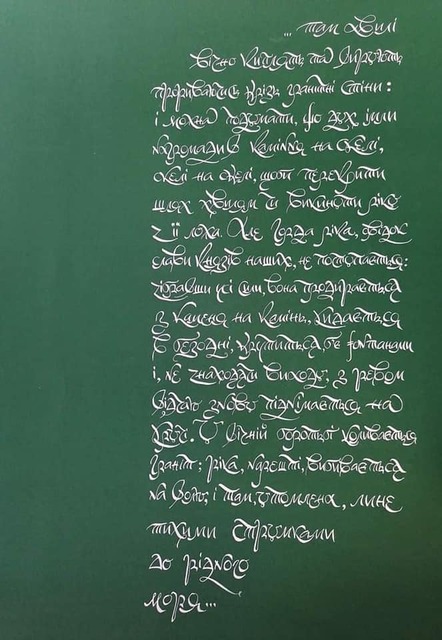 ... там хвилі
вічно киплять та вирують
прориваючись крізь гранітні стіни:
і можна подумати, що дух тьми
нагромадив каміння на скелі,
скелі на скелі, щоб перекрити
шлях хвилям й викинути ріку
з її ложа. Але горда ріка, свідок
слави князів наших, не поступається:
зібравши усі сили, вона продирається
з каменя на камінь, кидається
в безодні, крутиться, б'є фонтанами
і, не знаходячи виходу, з ревом
відтак знову піднімається на
У вічній боротьбі коливається
граніт; ріка, нарешті, виривається
на волю; і там, утомлена, лине
тихими струмками
до рідного
моря...